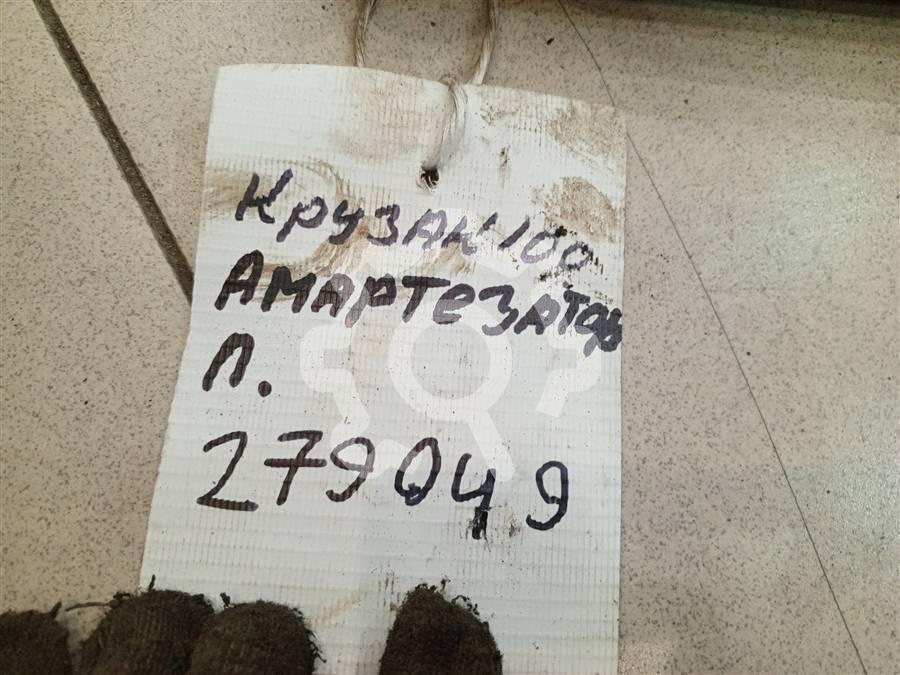 Крузак 100
Амартезатор
п.
279049